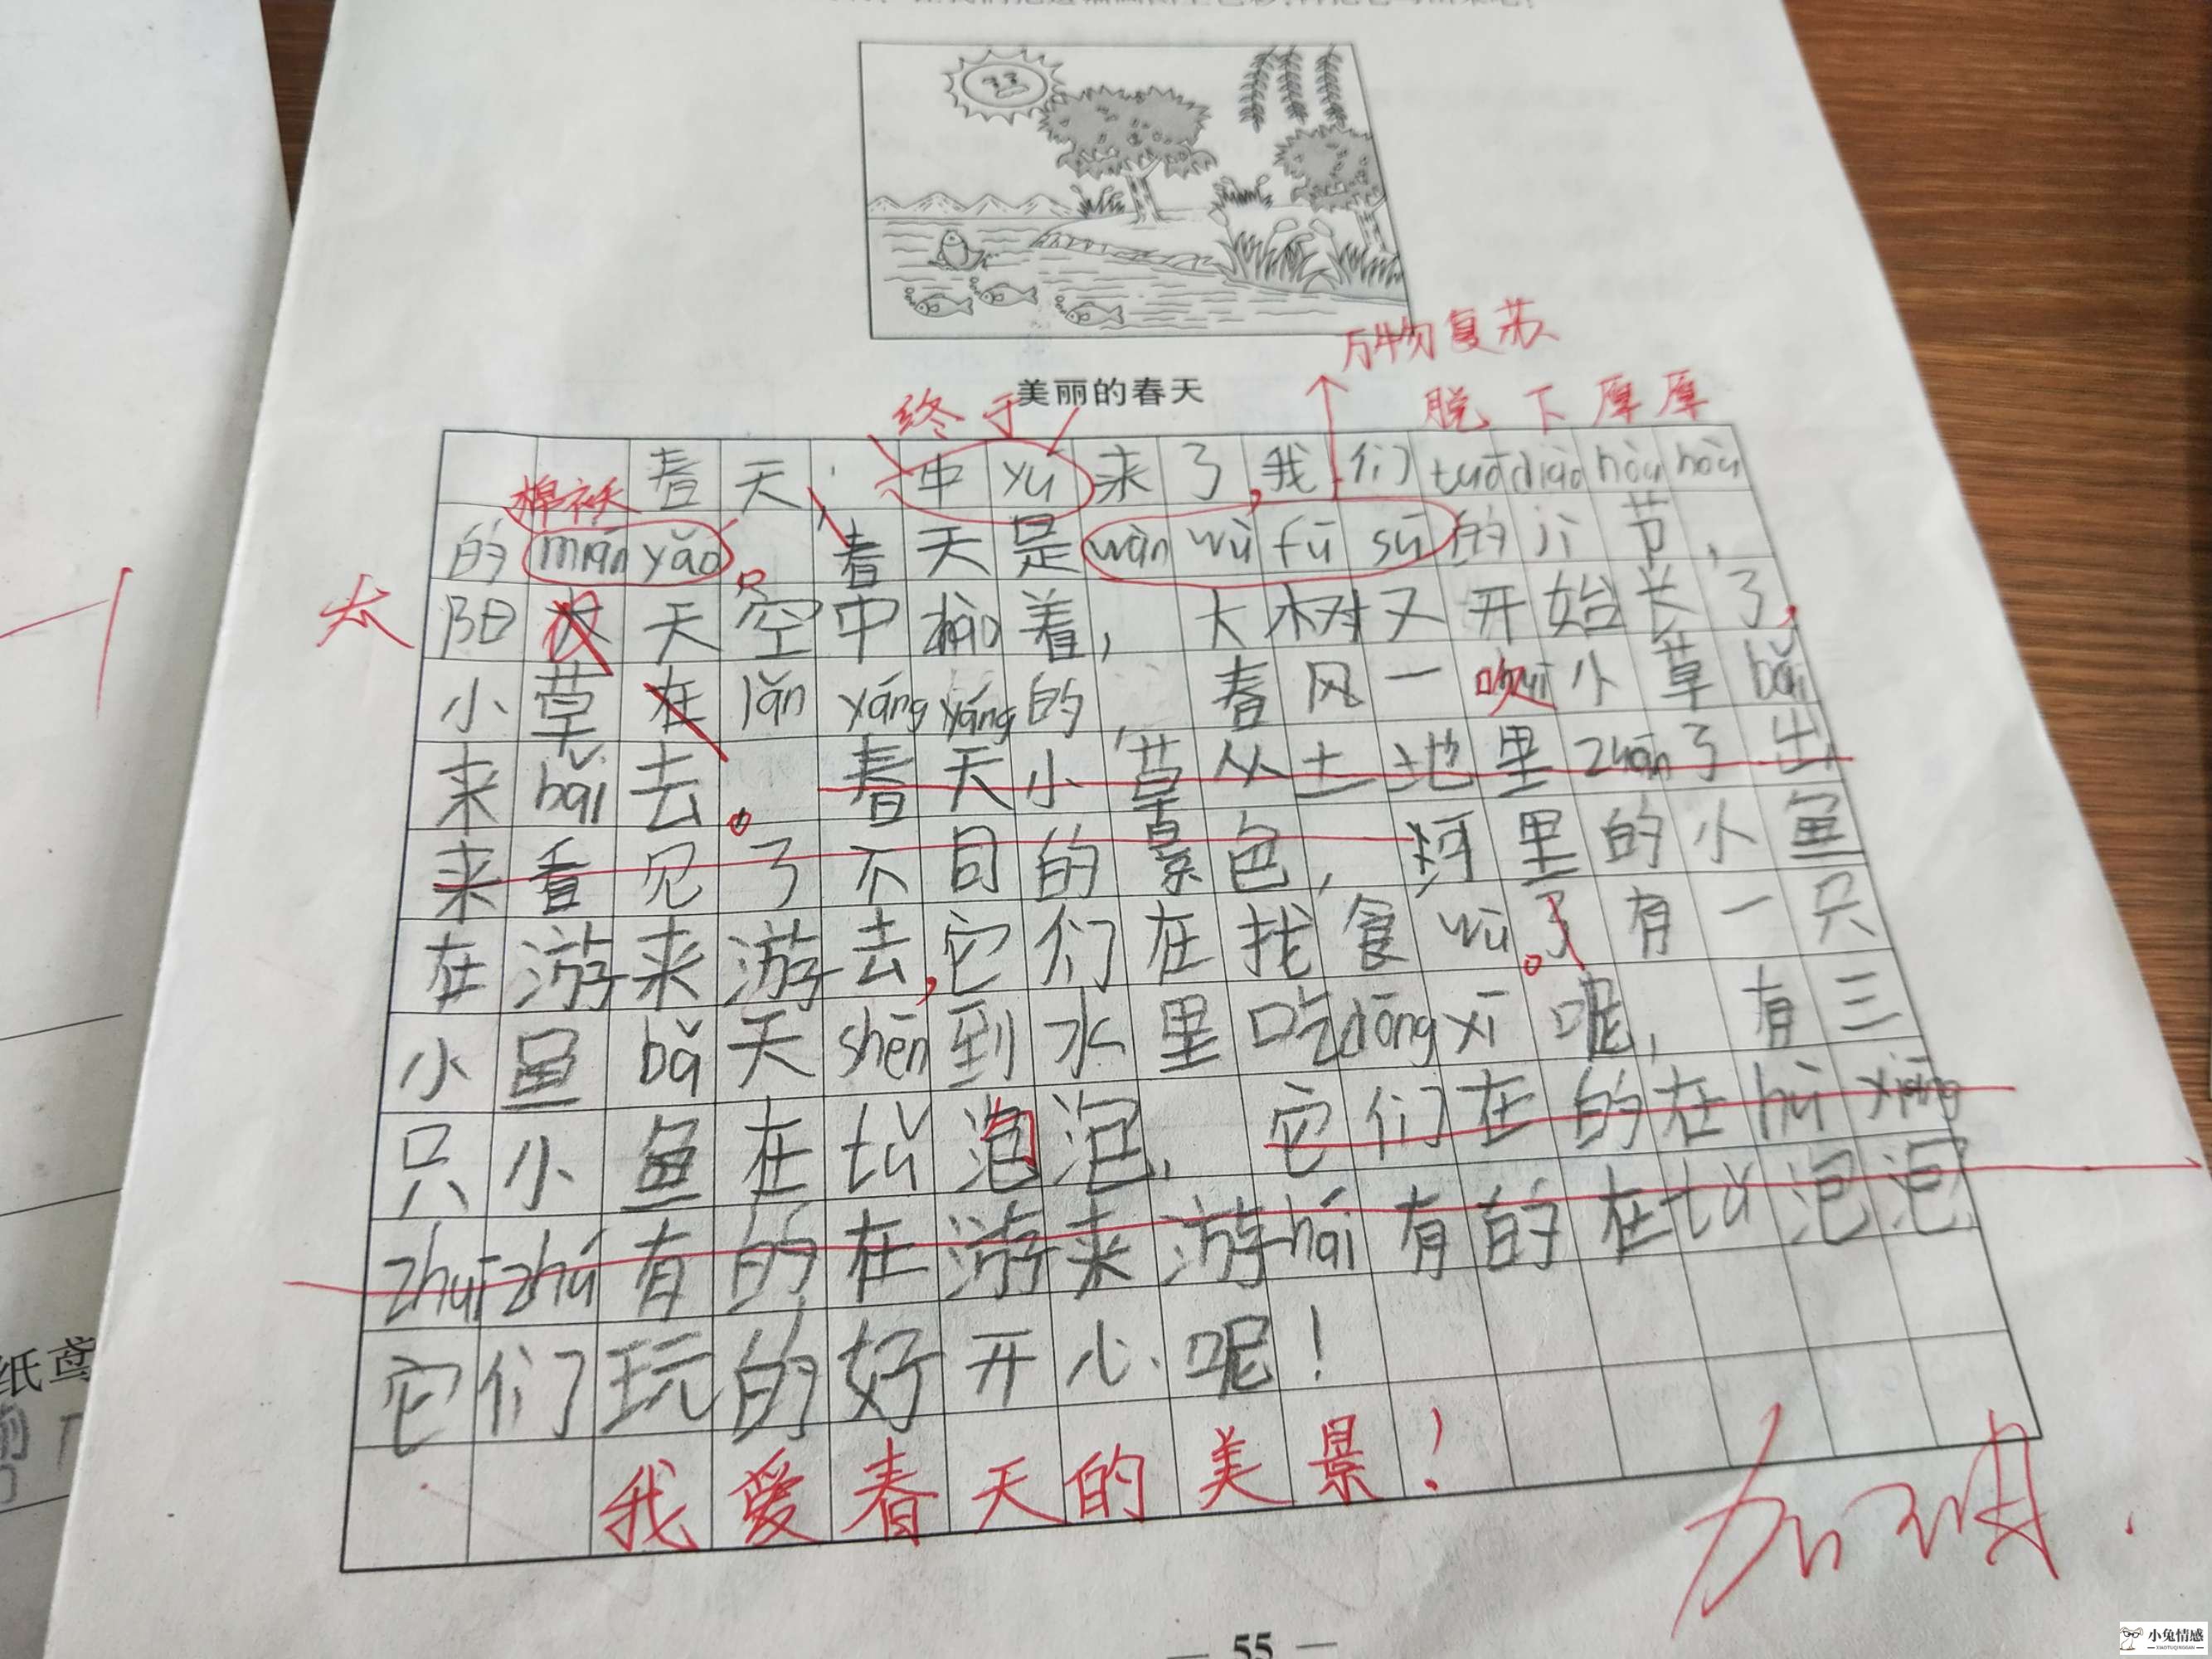 万物复苏
美丽的春天
终于
脱下厚厚
春天,中yú来了,我们tuō diào hòu hòu
棉袄
的mián yǎo。春天是wàn wù fù sū的jì节,
太
阳 天空中zhào着,大树又开始长了,
小草在lǎn yáng yáng的,春风一吹小草bǎi
来bǎi去。春天小草从土地里zhān了出
来看见了不同的景色,河里的小鱼
在游来游去,它们在找食wù。了有一只
小鱼bǎ天shēn到水里吃dōng xī呢,有三
只小鱼在tǔ泡泡,它们在的在hù xiāng
zhuī zhú有的在游来游hái有的在tǔ泡泡
它们玩的好开心呢!
我爱春天的美景!
加油.
— 55 —
纸鸢
小兔情感